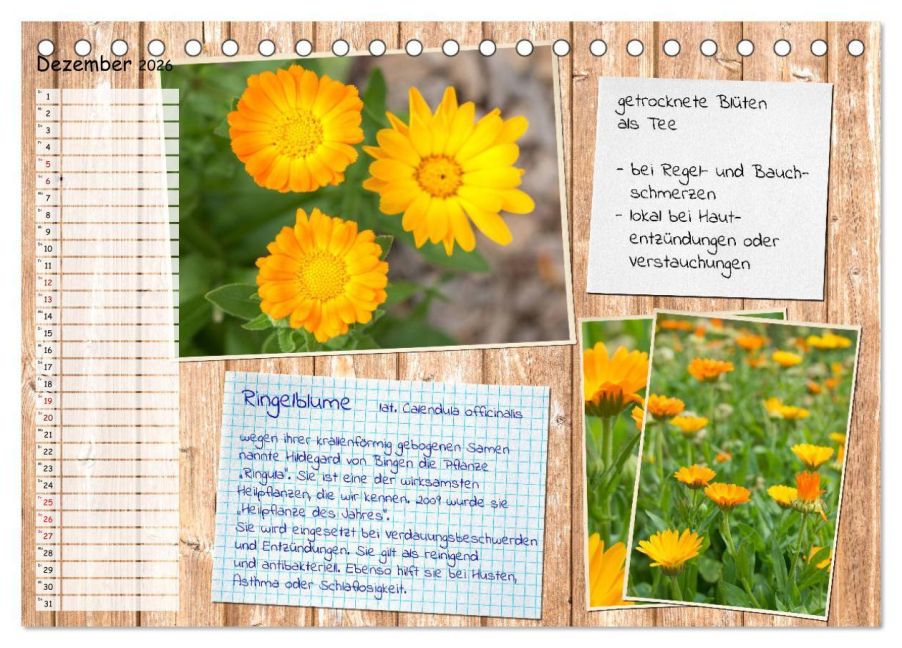 Dezember 2026
1
2
3
4
5
6
7
8
9
10
11
12
13
14
15
16
17
18
19
20
21
22
23
24
25
26
27
28
29
30
31
getrocknete Blüten
als Tee
- bei Regel- und Bauch-
schmerzen
- lokal bei Haut-
entzündungen oder
verstauchungen
Ringelblume lat. Calendula officinalis
wegen ihrer krallenförmig gebogenen Samen
nannte Hildegard von Bingen die Pflanze
„Ringula". Sie ist eine der wirksamsten
Heilpflanzen, die wir kennen. 2009 wurde sie
„Heilpflanze des Jahres".
Sie wird eingesetzt bei Verdauungsbeschwerden
und Entzündungen. Sie gilt als reinigend
und antibakteriell. Ebenso hilft sie bei Husten,
Asthma oder Schlaflosigkeit.